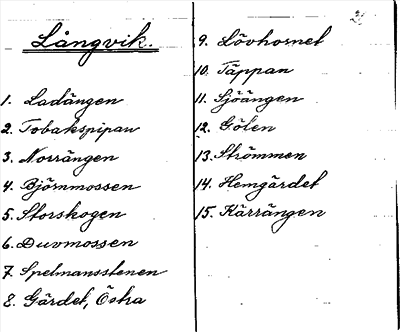 Långvik.
1. Ladängen
2. Tobakspipan
3. Norrängen
4. Björnmossen
5. Storskogen
6. Duvmossen
7. Spelmansstenen
8. Gärdet, Östra
2.
9. Lövhornet
10. Täppan
11. Sjöängen
12. Gölen
13. Strömmen
14. Hemgärdet
15. Kärrängen